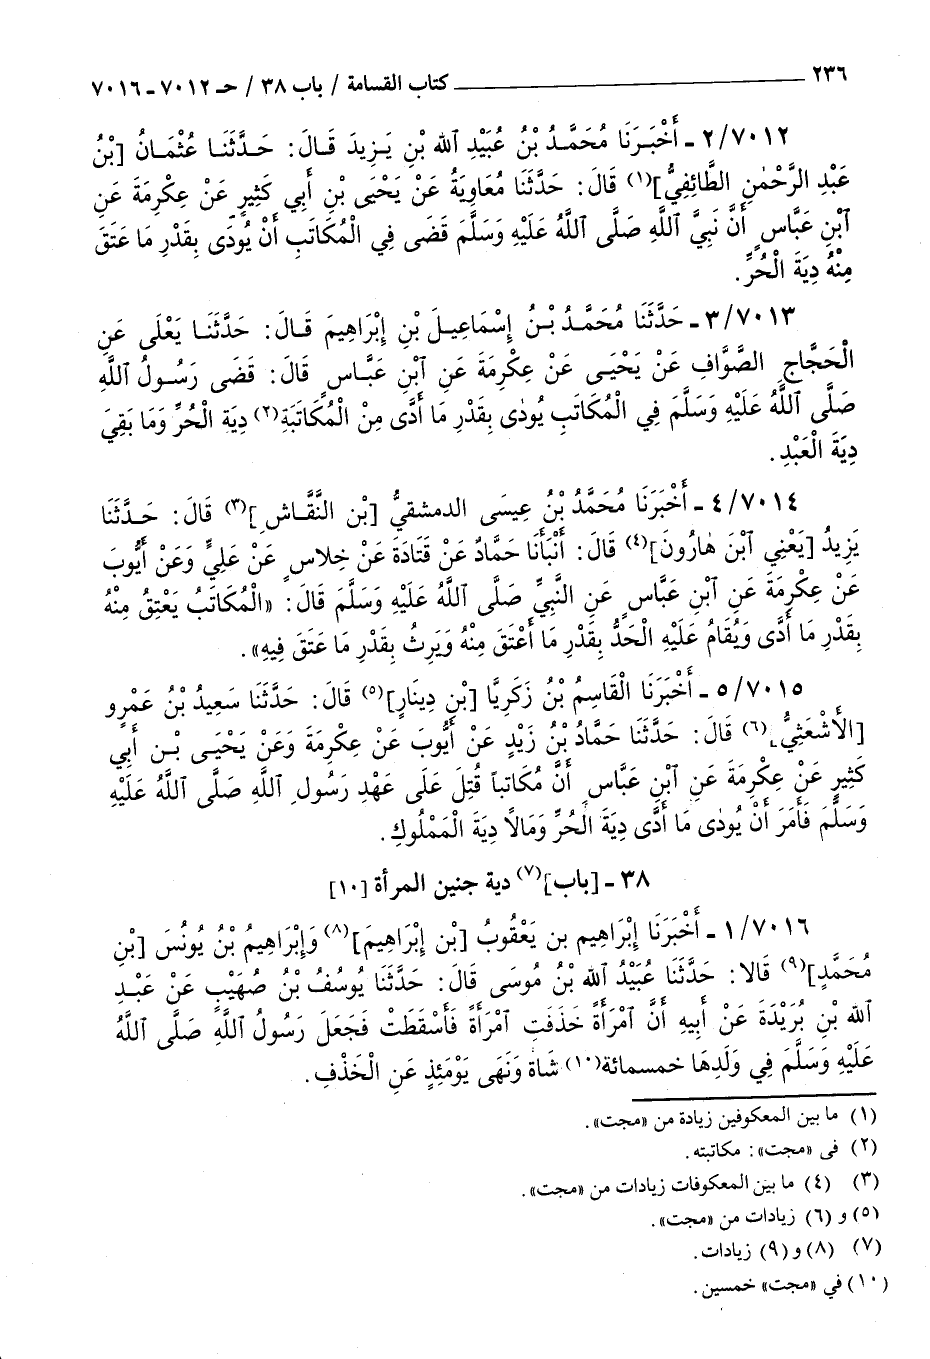 ٢٣٦ كتاب القسامة / باب ٣٨ / حـ ٧٠١٢ ـ ٧٠١٦
٢/٧٠١٢ ـ أَخْبَرَنَا مُحَمَّدُ بْنُ عُبَيْدِ اللهِ بْنِ يَزِيدَ قَالَ: حَدَّثَنَا عُثْمَانُ [بْنُ
عَبْدِ الرَّحْمٰنِ الطَّائِفِيُّ](١) قَالَ: حَدَّثَنَا مُعَاوِيَةُ عَنْ يَحْيَى بْنِ أَبِي كَثِيرٍ عَنْ عِكْرِمَةَ عَنِ
ٱبْنِ عَبَّاسٍ أَنَّ نَبِيَّ ٱللَّهِ صَلَّى ٱللَّهُ عَلَيْهِ وَسَلَّمَ قَضَى فِي الْمُكَاتَبِ أَنْ يُودَى بِقَدْرِ مَا عَتَقَ
مِنْهُ دِيَةَ الْحُرِّ.
٣/٧٠١٣ ـ حَدَّثَنَا مُحَمَّدُ بْنُ إِسْمَاعِيلَ بْنِ إِبْرَاهِيمَ قَالَ: حَدَّثَنَا يَعْلَى عَنِ
الْحَجَّاجِ الصَّوَّافِ عَنْ يَحْيَى عَنْ عِكْرِمَةَ عَنِ ٱبْنِ عَبَّاسٍ قَالَ: قَضَى رَسُولُ ٱللَّهِ
صَلَّى ٱللَّهُ عَلَيْهِ وَسَلَّمَ فِي الْمُكَاتَبِ يُودَى بِقَدْرِ مَا أَدَّى مِنْ الْمُكَاتَبَةِ(٢) دِيَةَ الْحُرِّ وَمَا بَقِيَ
دِيَةَ الْعَبْدِ.
٤/٧٠١٤ ـ أَخْبَرَنَا مُحَمَّدُ بْنُ عِيسَى الدمشقيُّ [بْنِ النَّقَّاشِ](٣) قَالَ: حَدَّثَنَا
يَزِيدُ [يَعْنِي ٱبْنَ هٰارُونَ](٤) قَالَ: أَنْبَأَنَا حَمَّادٌ عَنْ قَتَادَةَ عَنْ خِلَاسٍ عَنْ عَلِيٍّ وَعَنْ أَيُّوبَ
عَنْ عِكْرِمَةَ عَنِ ٱبْنِ عَبَّاسٍ عَنِ النَّبِيِّ صَلَّى ٱللَّهُ عَلَيْهِ وَسَلَّمَ قَالَ: «الْمُكَاتَبُ يَعْتِقُ مِنْهُ
بِقَدْرِ مَا أَدَّى وَيُقَامُ عَلَيْهِ الْحَدُّ بِقَدْرِ مَا أَعْتَقَ مِنْهُ وَيَرِثُ بِقَدْرِ مَا عَتَقَ فِيهِ».
٥/٧٠١٥ ـ أَخْبَرَنَا الْقَاسِمُ بْنُ زَكَرِيَّا [بْنِ دِينَارٍ](٥) قَالَ: حَدَّثَنَا سَعِيدُ بْنُ عَمْرٍو
[الأَشْعَثِيُّ](٦) قَالَ: حَدَّثَنَا حَمَّادُ بْنُ زَيْدٍ عَنْ أَيُّوبَ عَنْ عِكْرِمَةَ وَعَنْ يَحْيَى بْنِ أَبِي
كَثِيرٍ عَنْ عِكْرِمَةَ عَنِ ٱبْنِ عَبَّاسٍ أَنَّ مُكَاتَباً قُتِلَ عَلَى عَهْدِ رَسُولِ ٱللَّهِ صَلَّى ٱللَّهُ عَلَيْهِ
وَسَلَّمَ فَأَمَرَ أَنْ يُودَى مَا أَدَّى دِيَةَ الْحُرِّ وَمَالَا دِيَةَ الْمَمْلُوكِ.
٣٨ ـ [باب](٧) دية جنين المرأة [١٠]
١/٧٠١٦ ـ أَخْبَرَنَا إِبْرَاهِيم بن يَعْقُوبُ [بْنِ إِبْرَاهِيمَ](٨) وَإِبْرَاهِيمُ بْنُ يُونُسَ [بْنِ
مُحَمَّدٍ](٩) قَالَا: حَدَّثَنَا عُبَيْدُ اللهِ بْنُ مُوسَى قَالَ: حَدَّثَنَا يُوسُفُ بْنُ صُهَيْبٍ عَنْ عَبْدِ
اللهِ بْنِ بُرَيْدَةَ عَنْ أَبِيهِ أَنَّ ٱمْرَأَةً خَذَفَتِ ٱمْرَأَةً فَأَسْقَطَتْ فَجَعَلَ رَسُولُ ٱللَّهِ صَلَّى ٱللَّهُ
عَلَيْهِ وَسَلَّمَ فِي وَلَدِهَا خمسمائة(١٠) شَاةً وَنَهَى يَوْمَئِذٍ عَنِ الْخَذْفِ.
(١) ما بين المعكوفين زيادة من «مجت».
(٢) فى «مجت»: مكاتبته.
(٣) (٤) ما بين المعكوفات زيادات من «مجت».
(٥) و (٦) زيادات من «مجت».
(٧) (٨) و (٩) زيادات.
(١٠) في «مجت» خمسين.